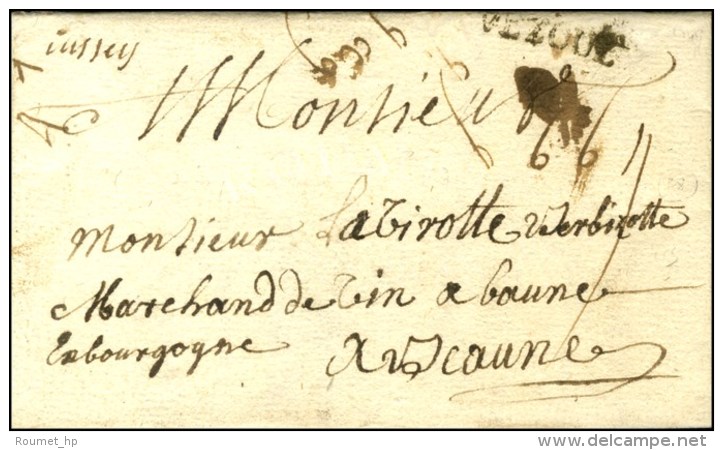 jussey
VEZOUL
Monsieur
Monsieur Lavirotte Verbirotte
Marchand de vin a baune
En bourgogne
A Beaune
Roumet_hp
delcampe.net